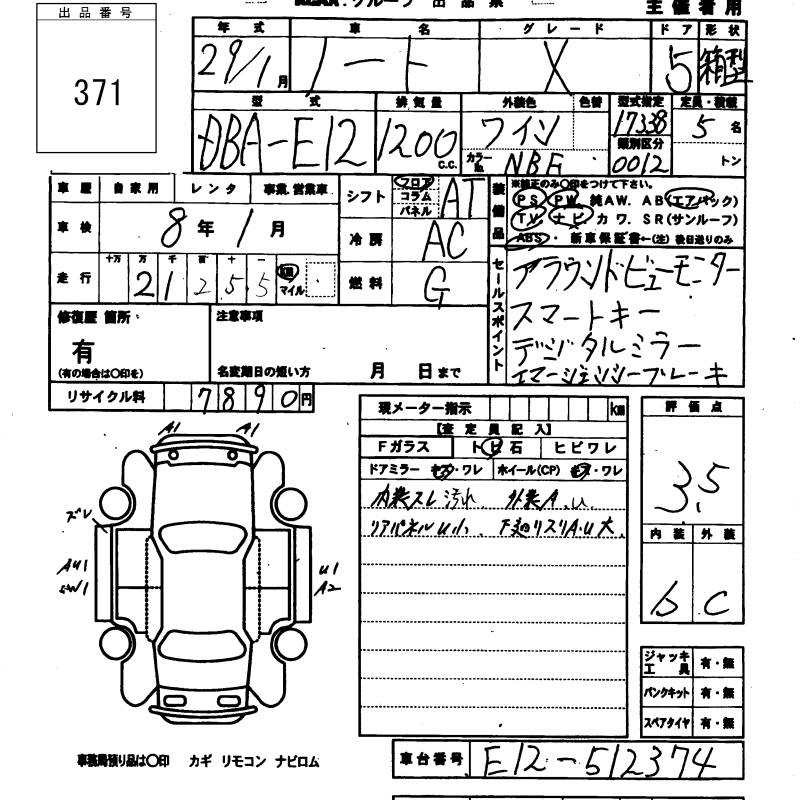 出品番号
371
主催者用
年式 車名 グレード ドア 形状
29/1月 ノート X 5 箱型
型式 排気量 外装色 色替 型式指定 定員・積載
DBA-E12 1200c.c. ワイン 17338 5名
カラーNo. NBF 類別区分 0012 トン
車歴 自家用 レンタ 事業.営業車
シフト フロア コラム パネル AT
車検 8年1月
冷房 AC
走行 十万 万 千 百 十 一
21255 km マイル
燃料 G
装備品 ※純正のみ○印をつけて下さい。
PS PW 純AW. AB(エアバック)
TV ナビ カワ. SR(サンルーフ)
ABS・ 新車保証書←(注)後日送りのみ
セールスポイント
アラウンドビューモニター
スマートキー
デジタルミラー
エマージェンシーブレーキ
修復歴 箇所:
有
(有の場合は○印を)
注意事項
名変期日の短い方 月 日まで
リサイクル料 7890円
現メーター指示 km
【査定員記入】
Fガラス トビ石 ヒビワレ
ドアミラー キズ・ワレ ホイール(CP) キズ・ワレ
内装スレ汚れ、外装A.U
リアパネルU小、下廻リスリA.U大.
評価点
3.5
内装 外装
b C
A1 A1
ズレ
AU1
SW1
U1
A2
ジャッキ工具 有・無
パンクキット 有・無
スペアタイヤ 有・無
事務局預り品は○印 カギ リモコン ナビロム
車台番号 E12-512374